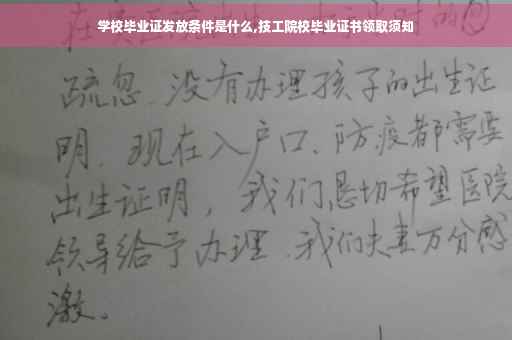 学校毕业证发放条件是什么,技工院校毕业证书领取须知
疏忽、没有办理孩子的出生证
明、现在入户口、防疫都需要
出生证明，我们恳切希望医院
领导给予办理、我们夫妻万分感
激。